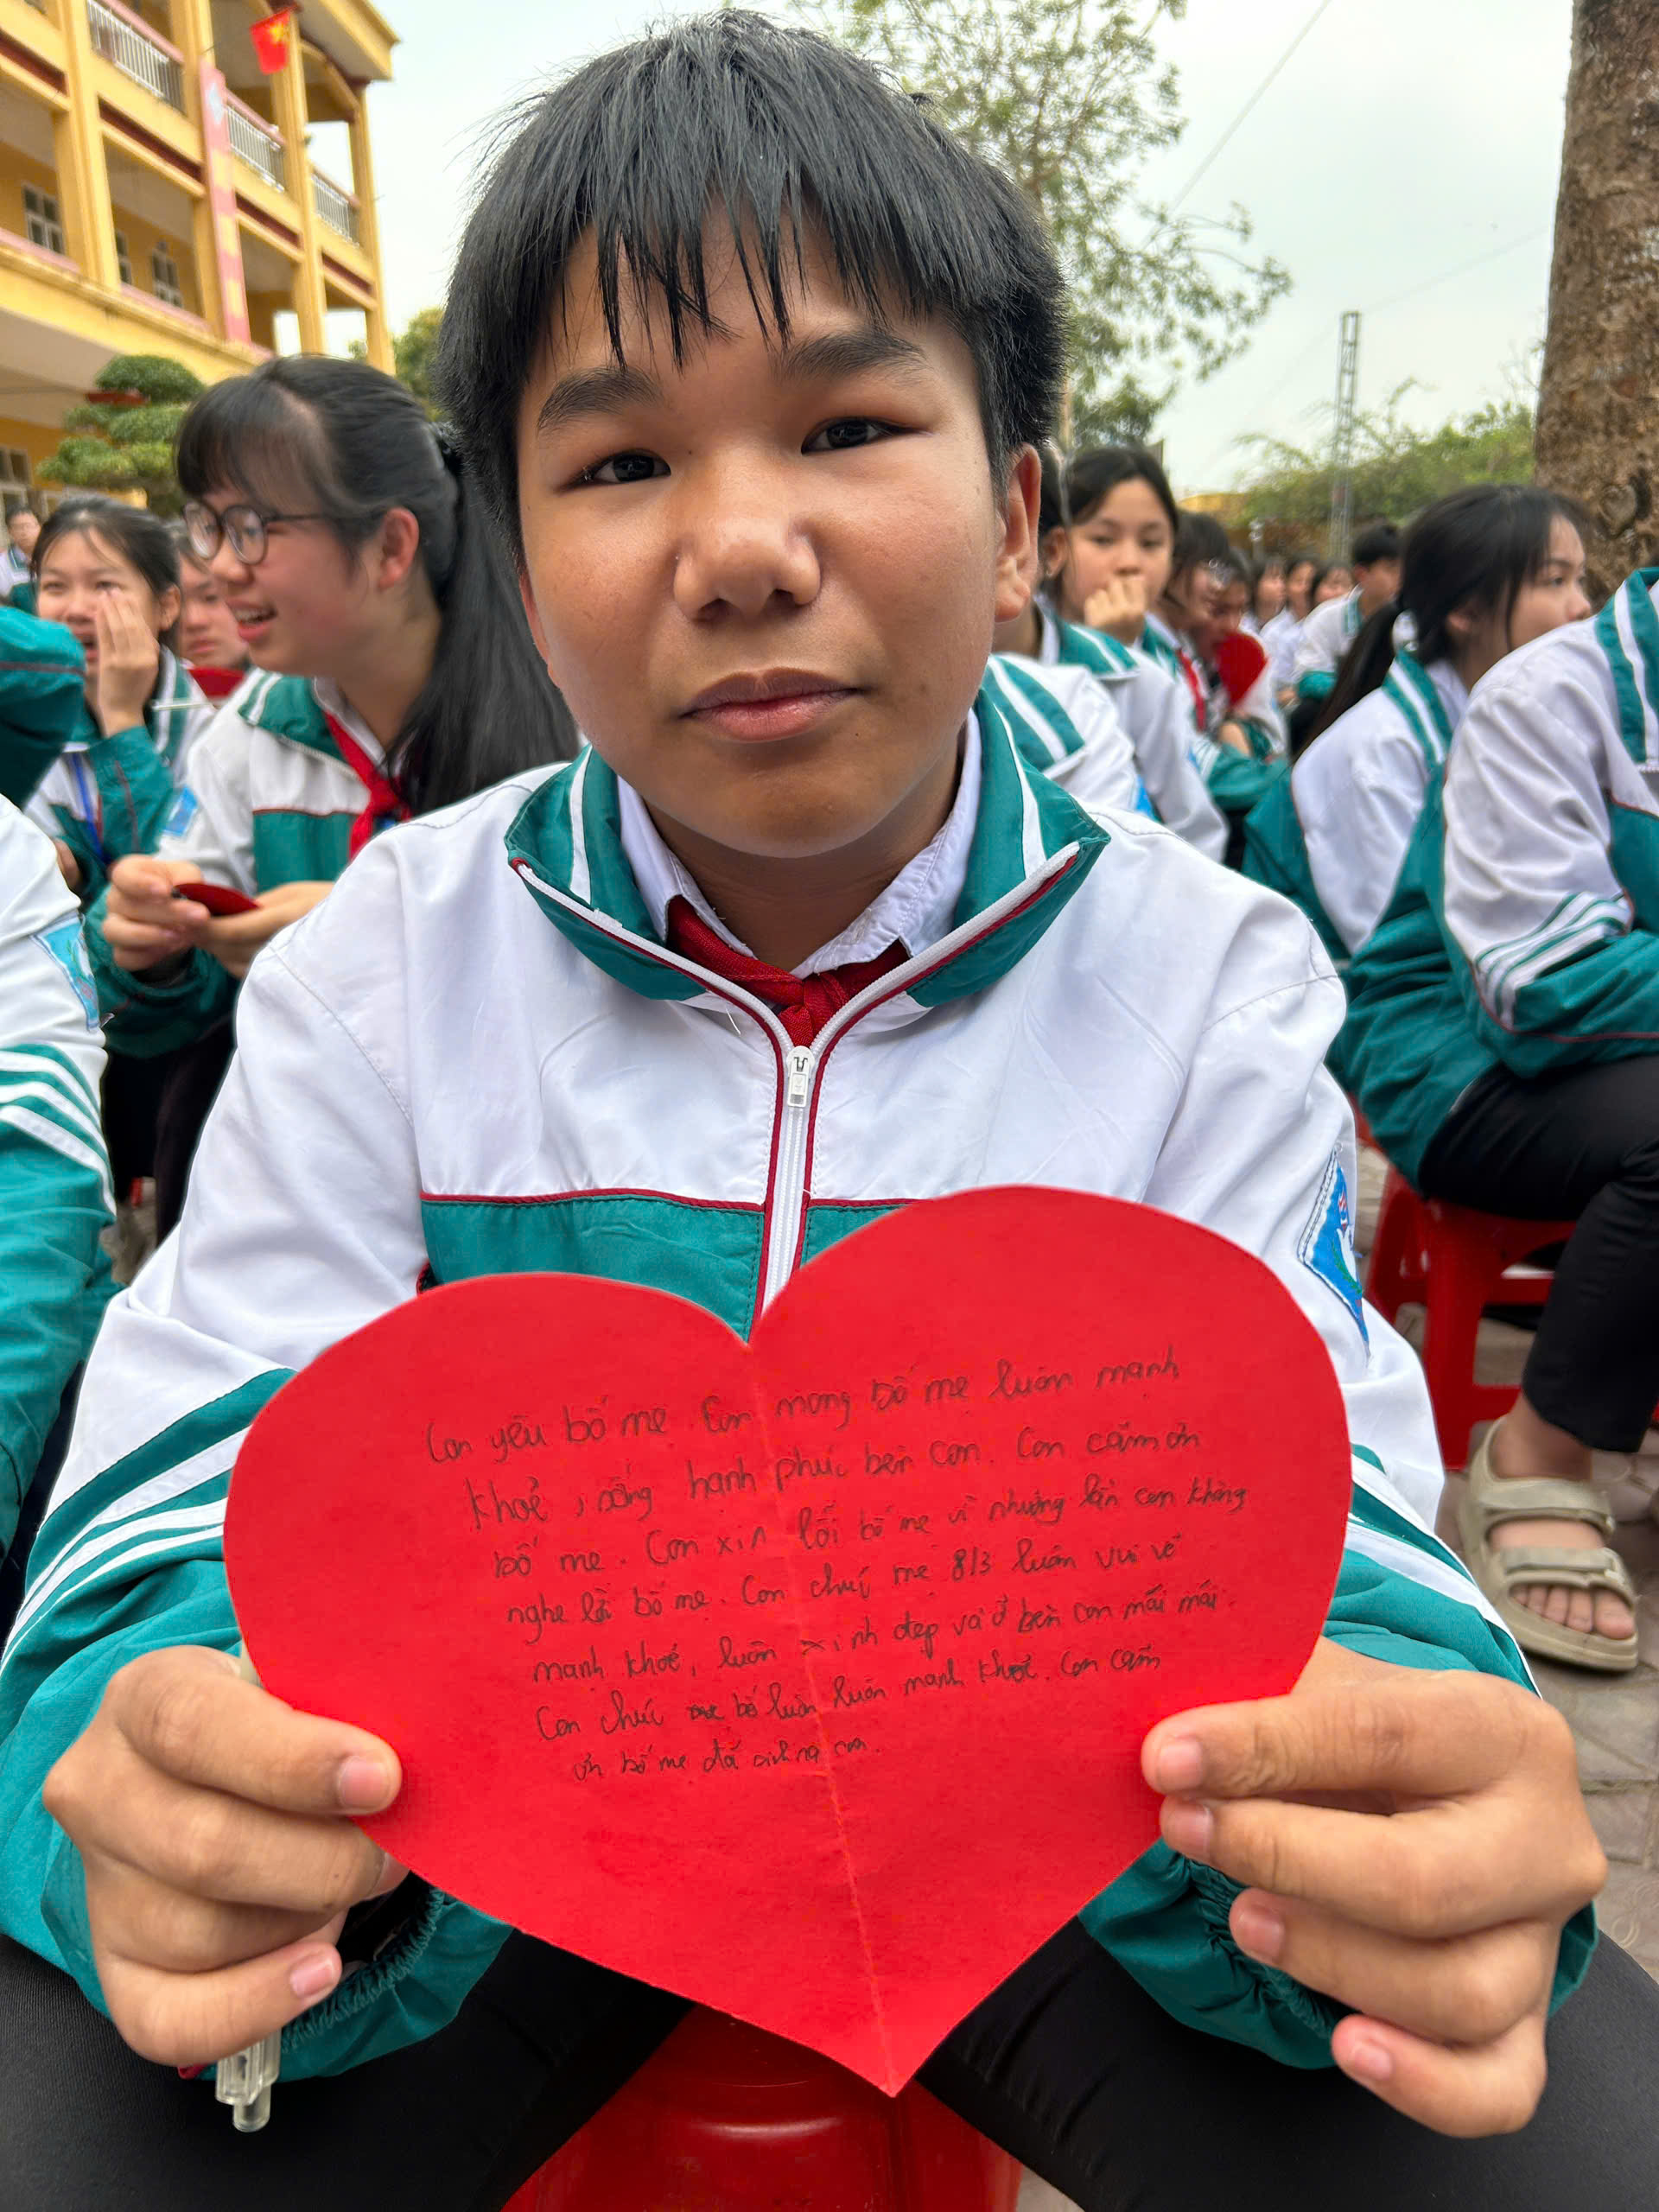 Con yêu bố mẹ. Con mong bố mẹ luôn mạnh
khoẻ, sống hạnh phúc bên con. Con cảm ơn
bố mẹ. Con xin lỗi bố mẹ vì những lần con không
nghe lời bố mẹ. Con chúc mẹ 8/3 luôn vui vẻ
mạnh khoẻ, luôn xinh đẹp và ở bên con mãi mãi.
Con chúc bố luôn luôn mạnh khoẻ. Con cảm
ơn bố mẹ đã sinh ra con.